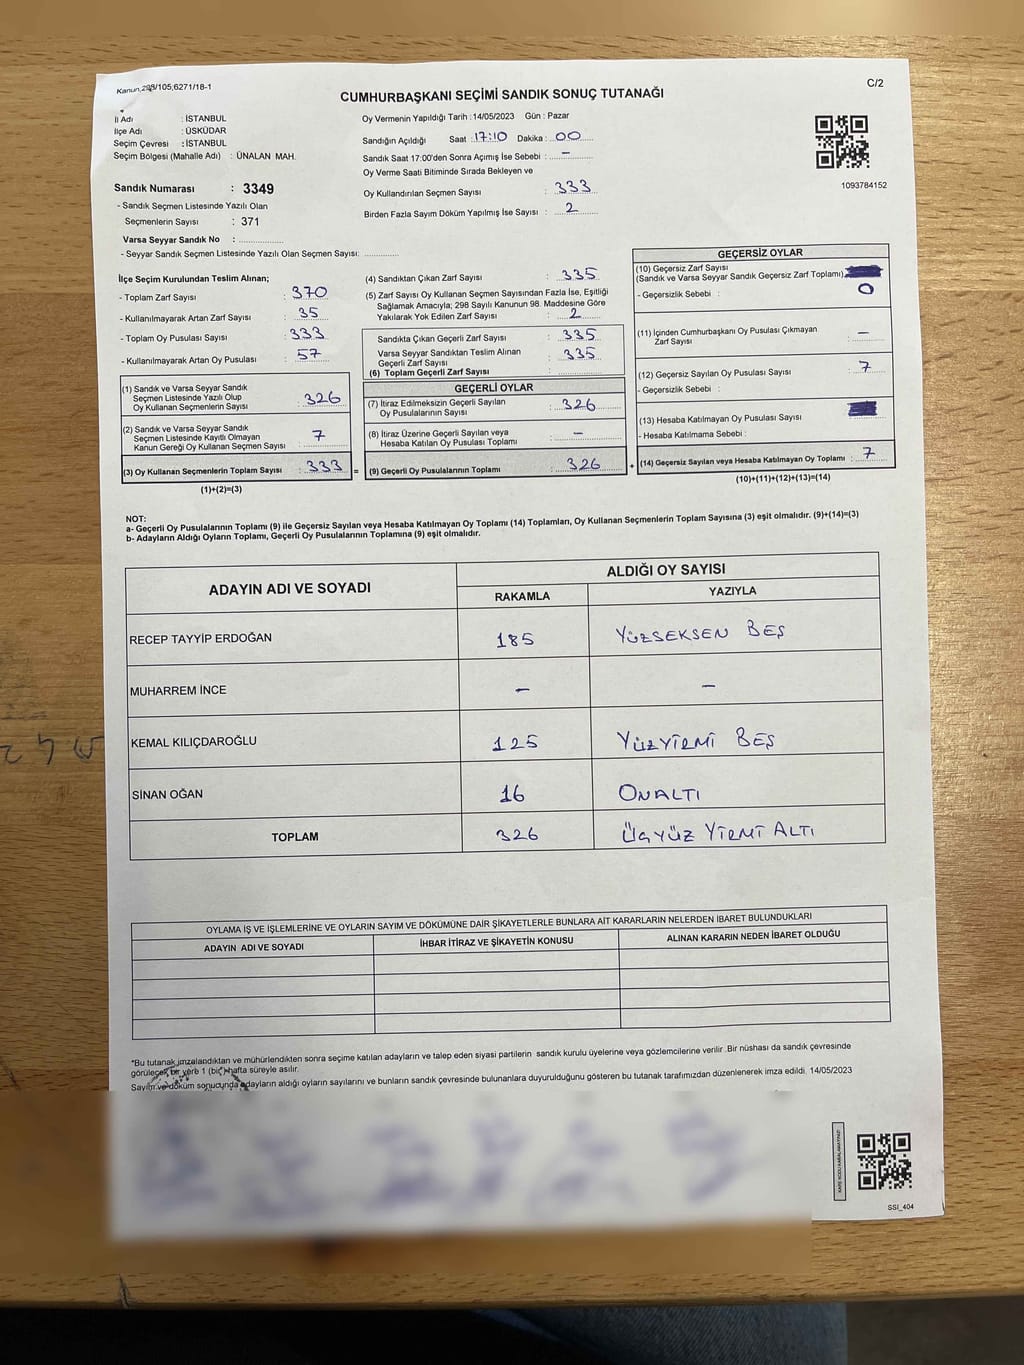 Kanun 298/105,6271/18-1
C/2
CUMHURBAŞKANI SEÇİMİ SANDIK SONUÇ TUTANAĞI
İl Adı : İSTANBUL
İlçe Adı : ÜSKÜDAR
Seçim Çevresi : İSTANBUL
Seçim Bölgesi (Mahalle Adı) : ÜNALAN MAH.
Sandık Numarası : 3349
- Sandık Seçmen Listesinde Yazılı Olan
Seçmenlerin Sayısı : 371
Varsa Seyyar Sandık No : ................
- Seyyar Sandık Seçmen Listesinde Yazılı Olan Seçmen Sayısı: ............
Oy Vermenin Yapıldığı Tarih : 14/05/2023 Gün : Pazar
Sandığın Açıldığı Saat : 17:10 Dakika : 00
Sandık Saat 17:00'den Sonra Açımış İse Sebebi : –
Oy Verme Saati Bitiminde Sırada Bekleyen ve
Oy Kullandırılan Seçmen Sayısı : 333
Birden Fazla Sayım Döküm Yapılmış İse Sayısı : 2
1093784152
İlçe Seçim Kurulundan Teslim Alınan;
- Toplam Zarf Sayısı : 370
- Kullanılmayarak Artan Zarf Sayısı : 35
- Toplam Oy Pusulası Sayısı : 333
- Kullanılmayarak Artan Oy Pusulası : 57
(1) Sandık ve Varsa Seyyar Sandık
Seçmen Listesinde Yazılı Olup
Oy Kullanan Seçmenlerin Sayısı : 326
(2) Sandık ve Varsa Seyyar Sandık
Seçmen Listesinde Kayıtlı Olmayan
Kanun Gereği Oy Kullanan Seçmen Sayısı : 7
(3) Oy Kullanan Seçmenlerin Toplam Sayısı : 333 =
(1)+(2)=(3)
(4) Sandıktan Çıkan Zarf Sayısı : 335
(5) Zarf Sayısı Oy Kullanan Seçmen Sayısından Fazla İse, Eşitliği
Sağlamak Amacıyla; 298 Sayılı Kanunun 98. Maddesine Göre
Yakılarak Yok Edilen Zarf Sayısı : 2
Sandıkta Çıkan Geçerli Zarf Sayısı : 335
Varsa Seyyar Sandıktan Teslim Alınan
Geçerli Zarf Sayısı : 335
(6) Toplam Geçerli Zarf Sayısı :
GEÇERLİ OYLAR
(7) İtiraz Edilmeksizin Geçerli Sayılan
Oy Pusulalarının Sayısı : 326
(8) İtiraz Üzerine Geçerli Sayılan veya
Hesaba Katılan Oy Pusulası Toplamı : –
(9) Geçerli Oy Pusulalarının Toplamı : 326 +
GEÇERSİZ OYLAR
(10) Geçersiz Zarf Sayısı
(Sandık ve Varsa Seyyar Sandık Geçersiz Zarf Toplamı)
- Geçersizlik Sebebi : 0
(11) İçinden Cumhurbaşkanı Oy Pusulası Çıkmayan
Zarf Sayısı : –
(12) Geçersiz Sayılan Oy Pusulası Sayısı : 7
- Geçersizlik Sebebi :
(13) Hesaba Katılmayan Oy Pusulası Sayısı :
- Hesaba Katılmama Sebebi :
(14) Geçersiz Sayılan veya Hesaba Katılmayan Oy Toplamı : 7
(10)+(11)+(12)+(13)=(14)
NOT:
a- Geçerli Oy Pusulalarının Toplamı (9) ile Geçersiz Sayılan veya Hesaba Katılmayan Oy Toplamı (14) Toplamları, Oy Kullanan Seçmenlerin Toplam Sayısına (3) eşit olmalıdır. (9)+(14)=(3)
b- Adayların Aldığı Oyların Toplamı, Geçerli Oy Pusulalarının Toplamına (9) eşit olmalıdır.
ADAYIN ADI VE SOYADI
ALDIĞI OY SAYISI
RAKAMLA YAZIYLA
RECEP TAYYİP ERDOĞAN 185 YÜZSEKSEN BEŞ
MUHARREM İNCE – –
KEMAL KILIÇDAROĞLU 125 YÜZYİRMİ BEŞ
SİNAN OĞAN 16 ONALTI
TOPLAM 326 ÜÇYÜZ YİRMİ ALTI
OYLAMA İŞ VE İŞLEMLERİNE VE OYLARIN SAYIM VE DÖKÜMÜNE DAİR ŞİKAYETLERLE BUNLARA AİT KARARLARIN NELERDEN İBARET BULUNDUKLARI
ADAYIN ADI VE SOYADI İHBAR İTİRAZ VE ŞİKAYETİN KONUSU ALINAN KARARIN NEDEN İBARET OLDUĞU
*Bu tutanak imzalandıktan ve mühürlendikten sonra seçime katılan adayların ve talep eden siyasi partilerin sandık kurulu üyelerine veya gözlemcilerine verilir. Bir nüshası da sandık çevresinde
görülecek bir yere 1 (bir) hafta süreyle asılır.
Sayım ve döküm sonucunda adayların aldığı oyların sayılarını ve bunların sandık çevresinde bulunanlara duyurulduğunu gösteren bu tutanak tarafımızdan düzenlenerek imza edildi. 14/05/2023
SSI_404